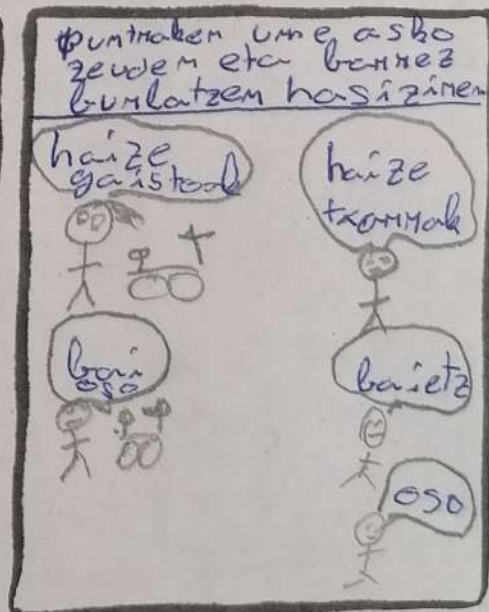 pumtraken ume asko
zeuden eta barrez
burlatzen hasiziren
haize
gaistoak
haize
txarrak
bai
oso
baietz
oso